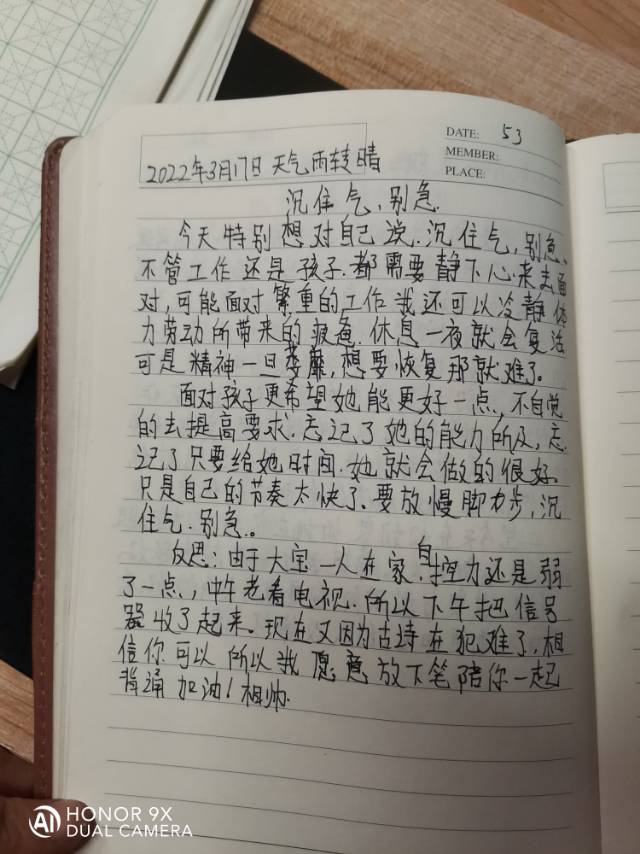 DATE: 53
MEMBER:
PLACE:
2022年3月17日 天气 雨转晴
沉住气，别急.
今天特别想对自己说.沉住气，别急、
不管工作还是孩子.都需要静下心来去面
对，可能面对繁重的工作我还可以冷静 体
力劳动所带来的疲惫.休息一夜就会复活
可是精神一旦萎靡，想要恢复那就难了。
面对孩子更希望她能更好一点，不自觉
的去提高要求.忘记了她的能力所及，忘
记了只要给她时间.她就会做的很好。
只是自己的节奏太快了.要放慢脚步，沉
住气.别急。
反思：由于大宝一人在家.自控力还是弱
了一点，中午老看电视.所以下午把信号
器收了起来。现在又因为古诗在犯难了，相
信你可以所以我愿意放下笔陪你一起
背诵 加油！相帅.
AI HONOR 9X
DUAL CAMERA